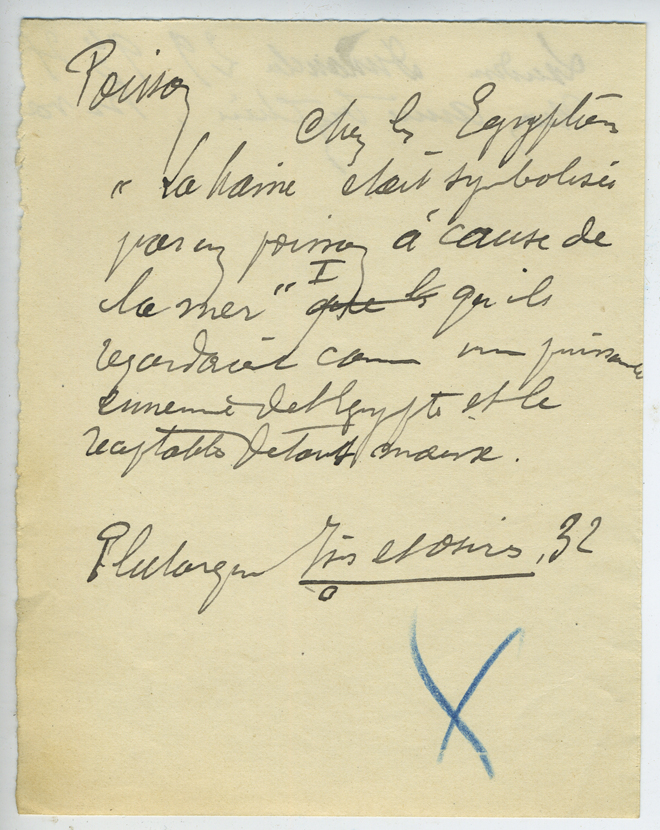 Poisson
Chez les Egyptiens
" la haine était symbolisée
par un poisson à cause de
la mer " I que les qu'ils
regardaient comme une puissance
ennemie de l'Egypte et le
réceptable de tous
Plutarque Isis et Osiris, 32